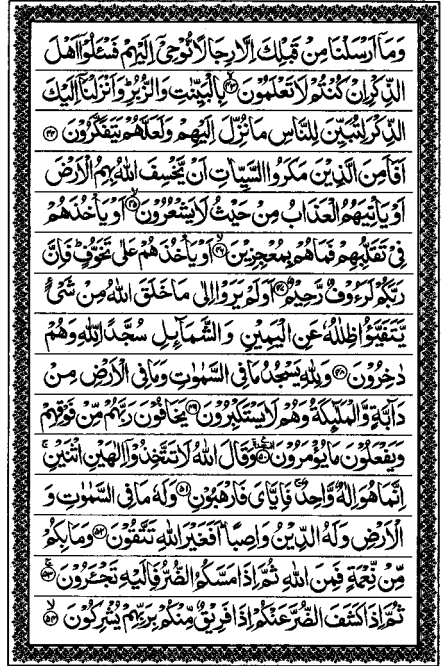 وَمَآ اَرْسَلْنَا مِنْ قَبْلِكَ اِلَّا رِجَالًا نُّوْحِيْٓ اِلَيْهِمْ فَسْـَٔلُوْٓا اَهْلَ
الذِّكْرِ اِنْ كُنْتُمْ لَا تَعْلَمُوْنَ ۝٤٣ بِالْبَيِّنٰتِ وَالزُّبُرِ ؕ وَاَنْزَلْنَآ اِلَيْكَ
الذِّكْرَ لِتُبَيِّنَ لِلنَّاسِ مَا نُزِّلَ اِلَيْهِمْ وَلَعَلَّهُمْ يَتَفَكَّرُوْنَ ۝٤٤
اَفَاَمِنَ الَّذِيْنَ مَكَرُوا السَّيِّاٰتِ اَنْ يَّخْسِفَ اللّٰهُ بِهِمُ الْاَرْضَ
اَوْ يَاْتِيَهُمُ الْعَذَابُ مِنْ حَيْثُ لَا يَشْعُرُوْنَ ۝٤٥ اَوْ يَاْخُذَهُمْ
فِيْ تَقَلُّبِهِمْ فَمَا هُمْ بِمُعْجِزِيْنَ ۝٤٦ اَوْ يَاْخُذَهُمْ عَلٰى تَخَوُّفٍ ؕ فَاِنَّ
رَبَّكُمْ لَرَءُوْفٌ رَّحِيْمٌ ۝٤٧ اَوَلَمْ يَرَوْا اِلٰى مَا خَلَقَ اللّٰهُ مِنْ شَيْءٍ
يَّتَفَيَّؤُا ظِلٰلُهٗ عَنِ الْيَمِيْنِ وَالشَّمَآئِلِ سُجَّدًا لِّلّٰهِ وَهُمْ
دٰخِرُوْنَ ۝٤٨ وَلِلّٰهِ يَسْجُدُ مَا فِي السَّمٰوٰتِ وَمَا فِي الْاَرْضِ مِنْ
دَآبَّةٍ وَّالْمَلٰٓئِكَةُ وَهُمْ لَا يَسْتَكْبِرُوْنَ ۝٤٩ يَخَافُوْنَ رَبَّهُمْ مِّنْ فَوْقِهِمْ
وَيَفْعَلُوْنَ مَا يُؤْمَرُوْنَ ۝٥٠ وَقَالَ اللّٰهُ لَا تَتَّخِذُوْٓا اِلٰهَيْنِ اثْنَيْنِ ۚ
اِنَّمَا هُوَ اِلٰهٌ وَّاحِدٌ ۚ فَاِيَّايَ فَارْهَبُوْنِ ۝٥١ وَلَهٗ مَا فِي السَّمٰوٰتِ وَ
الْاَرْضِ وَلَهُ الدِّيْنُ وَاصِبًا ؕ اَفَغَيْرَ اللّٰهِ تَتَّقُوْنَ ۝٥٢ وَمَا بِكُمْ
مِّنْ نِّعْمَةٍ فَمِنَ اللّٰهِ ثُمَّ اِذَا مَسَّكُمُ الضُّرُّ فَاِلَيْهِ تَجْـَٔرُوْنَ ۝٥٣ۚ
ثُمَّ اِذَا كَشَفَ الضُّرَّ عَنْكُمْ اِذَا فَرِيْقٌ مِّنْكُمْ بِرَبِّهِمْ يُشْرِكُوْنَ ۝٥٤ۙ